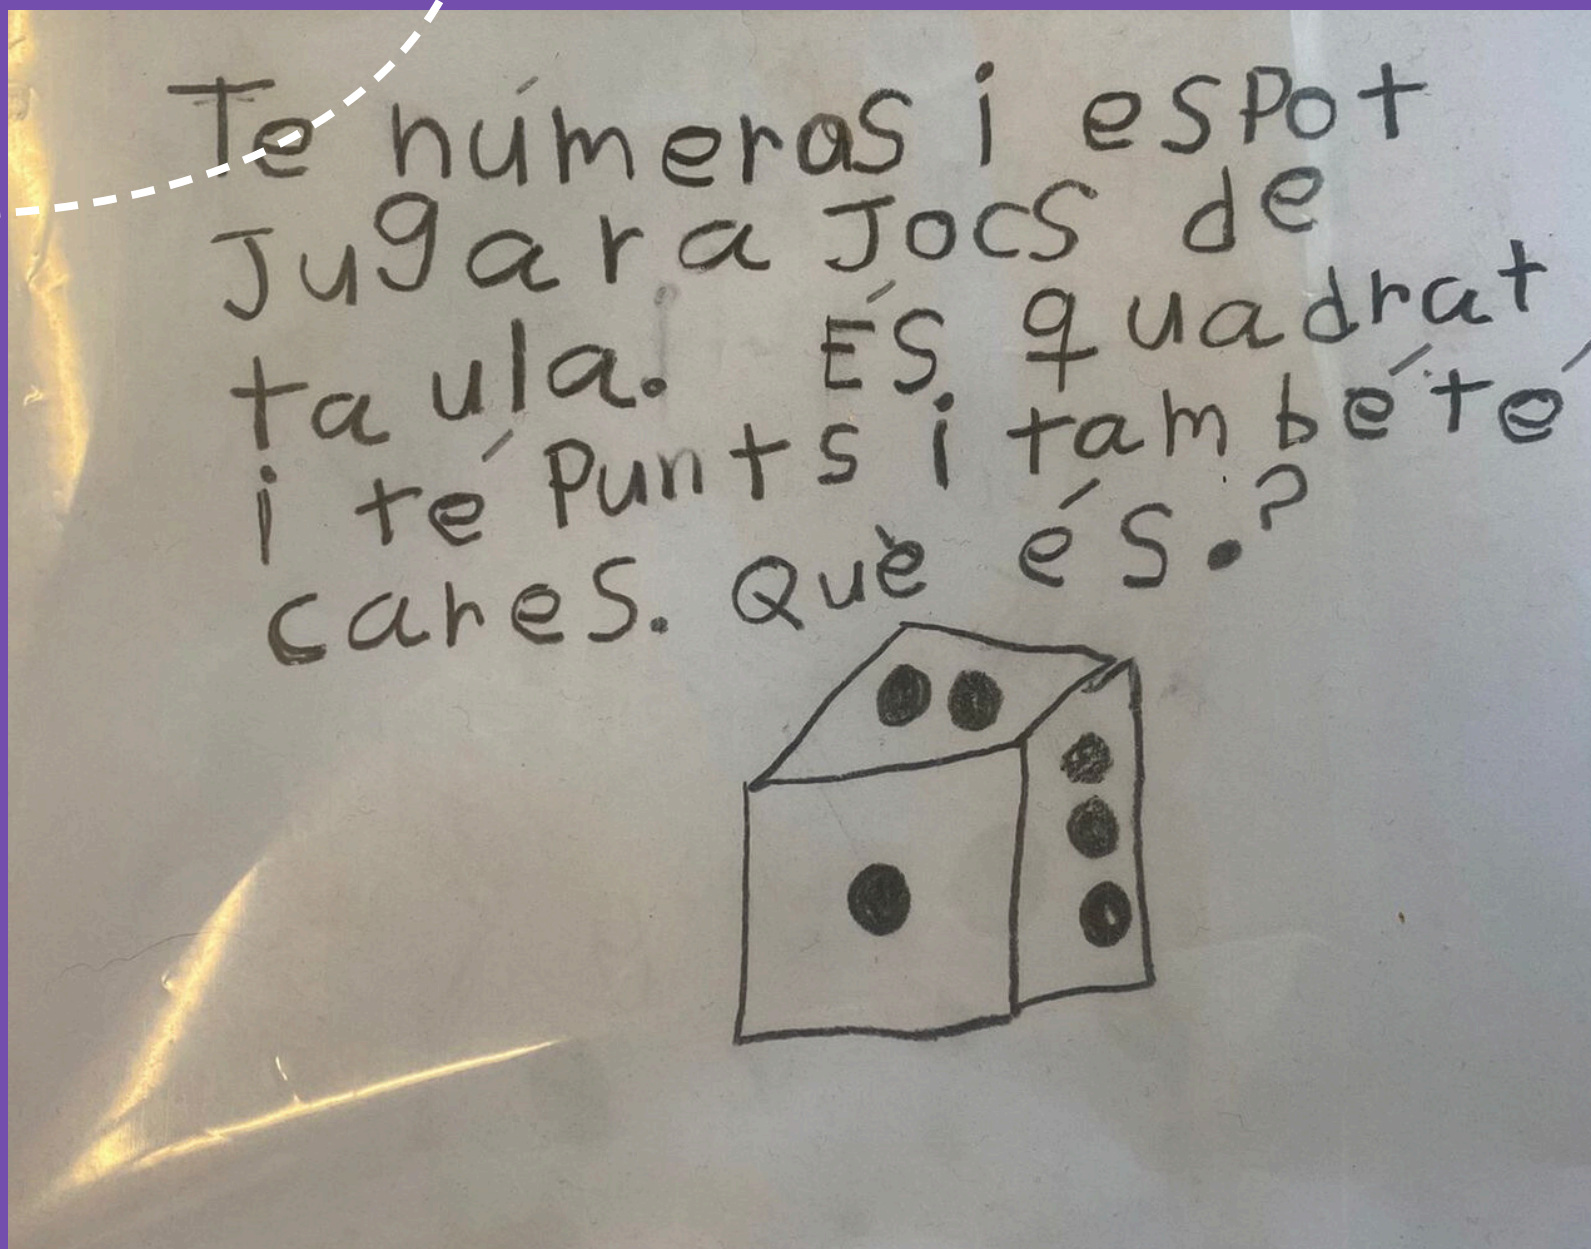 Te números i espot
Jugar a Jocs de
taula. És quadrat
i té Punts i també té
cares. Què és.?